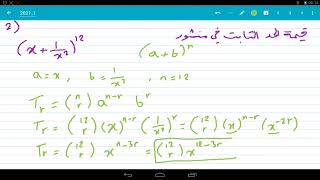 2021_1
2) قيمة الحد الثابت في منشور
(x + 1/x²)¹² (a+b)ⁿ
a = x , b = 1/x² , n = 12
Tr = (n r) a^(n-r) b^r
Tr = (12 r) (x)^(n-r) (1/x²)^r = (12 r) (x)^(n-r) (x^(-2r))
Tr = (12 r) x^(n-3r) = (12 r) x^(12-3r)